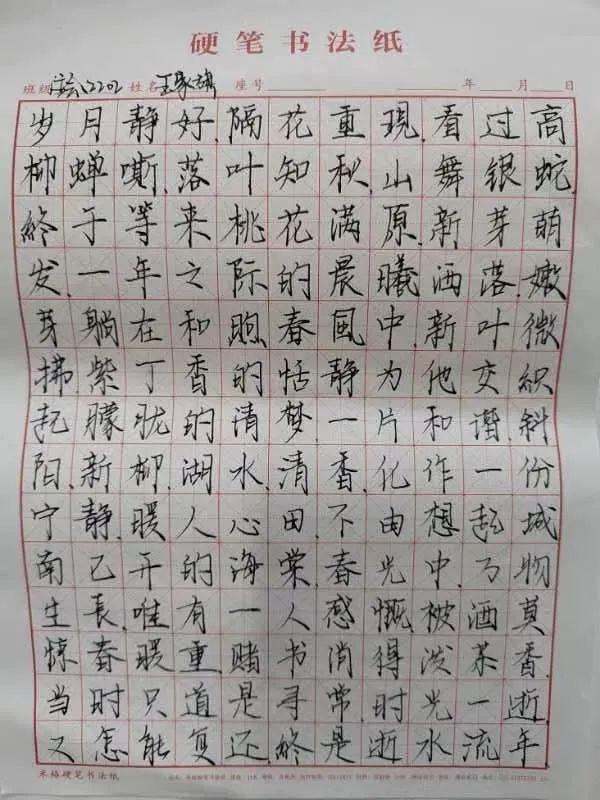 硬笔书法纸
班级 2202 姓名 王 座号 年 月 日
岁月静好,隔花重現,看过高
柳蝉嘶,落叶知秋,山舞银蛇,
終于等来桃花满原,新芽萌
发,一年之际的晨曦洒落,嫩
芽躺在和煦春風中,新叶微
拂,紫丁香的恬静为他交織
起朦胧的清梦,一片和谐,斜
阳,新柳,湖水,清香,化作一份
宁静,暖人心田,不由想起城
南已开的海棠,春光中,万物
生長,唯有一人感慨,被酒莫
惊春暖重,赌书消得泼茶香,
当时只道是寻常,时光一逝,
又怎能复还,終是逝水流年
米格硬笔书法纸